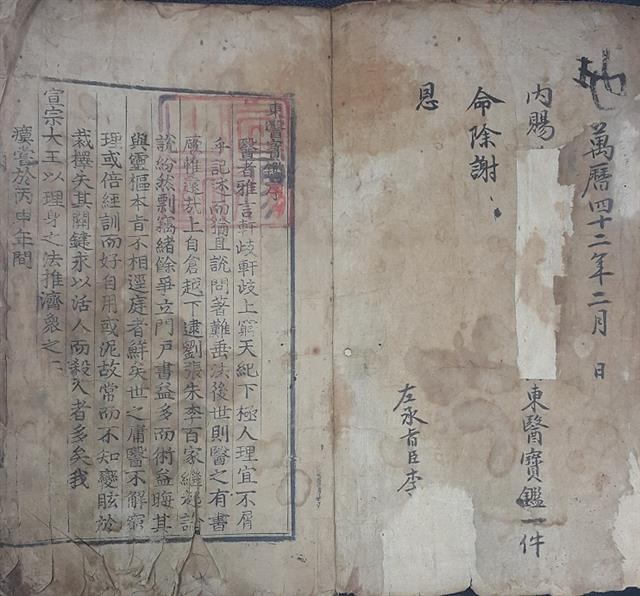 萬曆四十二年二月 日
內賜 東醫寶鑑一件
命除謝
恩
左承旨臣李
東醫寶鑑序
醫者雅言軒岐軒岐上窮天紀下極人理宜不屑
乎記述而猶且說問著難垂法後世則醫之有書
厥惟遠哉上自倉越下逮劉張朱李百家繼起論
說紛然剽竊緒餘爭立門戶書益多而術益晦其
與靈樞本旨不相逕庭者鮮矣世之庸醫不解窮
理或倍經訓而好自用或泥故常而不知變眩於
裁擇失其關鍵求以活人而殺人者多矣我
宣宗大王以理身之法推濟衆之
瘼嘗於丙申年間